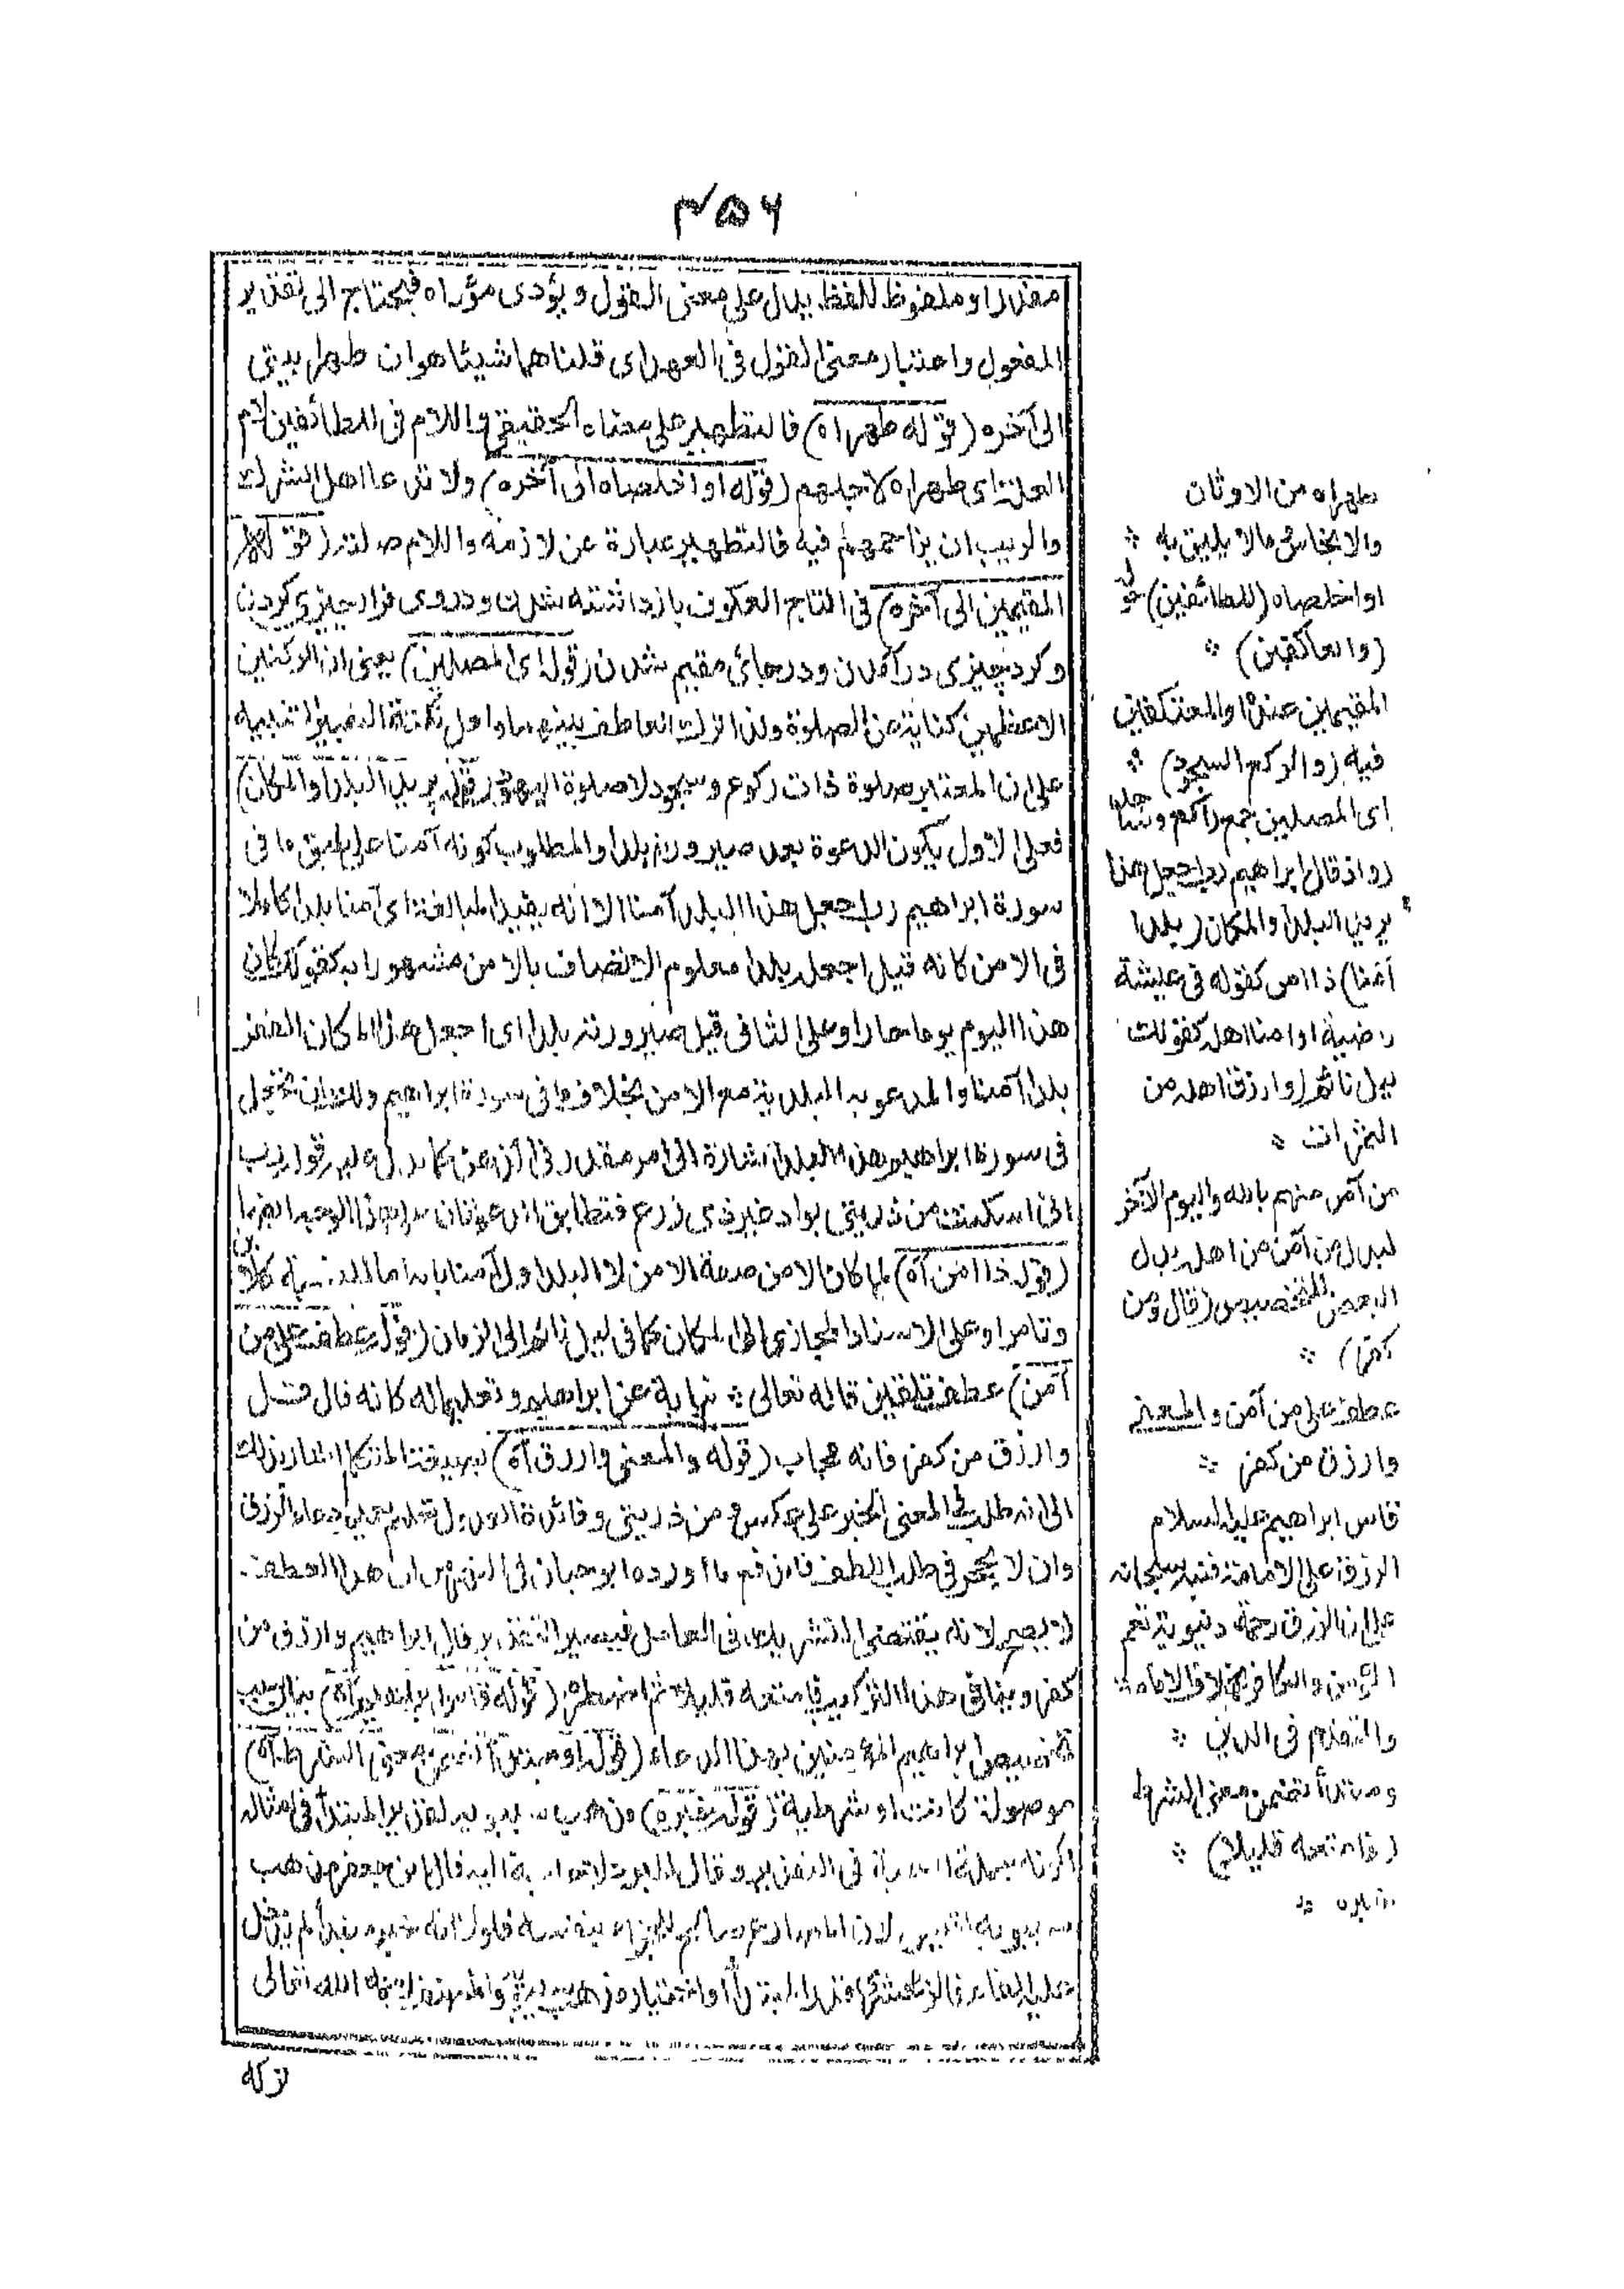 ۴۵۶
مقدرا او ملفوظ للفظ يدل على معنى القول ويؤدى مؤداه فيحتاج الى تقدير
المفعول واعتبار معنى القول فى العهد اى قلنا لهما شيئا هو ان طهرا بيتى
الى آخره (قوله طهراه) فالتطهير على معناه الحقيقى واللام فى للطائفين لام
العلة اى طهراه لاجلهم (قوله او اخلصاه الى آخره) ولا تدعا اهل الشرك
والريب ان يزاحمهم فيه فالتطهير عبارة عن لازمه واللام صلته (قوله
المقيمين الى آخره) فى التاج العكوف بازداشته شدن و دروى فرا چيزى كردن
وكرد چيزى در آمدن و در جائى مقيم شدن (قوله اى المصلين) يعنى ان الركنين
الاعظمين كناية عن الصلوة ولذا ترك العاطف بينهما ولعل نكتة التعبير التنبيه
على ان المعتبر صلوة ذات ركوع وسجود لا صلوة اليهود (قوله يريد البلد او المكان)
فعلى الاول يكون الدعوة بعد صيرورته بلدا والمطلوب كونه آمنا على طبق ما فى
سورة ابراهيم رب اجعل هذا البلد آمنا الا انه يفيد المبالغة اى آمنا بلدا كاملا
فى الامن كانه قيل اجعله بلدا معلوم الاتصاف بالامن مشهورا به كقولك كان
هذا اليوم يوما حارا وعلى الثانى قبل صيرورته بلدا اى اجعل هذا المكان القفر
بلدا آمنا والمدعو به البلدية مع الامن بخلاف ما فى سورة ابراهيم ولك ان تجعل
فى سورة ابراهيم هذا البلد اشارة الى امر مقدر فى الذهن كما يدل عليه قوله رب
انى اسكنت من ذريتى بواد غير ذى زرع فتطابق الدعوتان
(قوله ذا امن آه) لما كان الامن صفة الا من لا البلد اول آمنا بانه اما للنسبة كلابن
وتامر او على الاسناد المجازى الى المكان كما فى ليل نائم الى الزمان (قوله عطف على من
آمن) عطف تلقين قاله تعالى ❊ نيابة عن ابراهيم وتعليما له كانه قال قل
وارزق من كفر فانه مجاب (قوله والمعنى وارزق آه) بصيغة المتكلم اشار بذلك
الى انه طلب فى المعنى الخبر على عكس ومن ذريتى وفائدة العدول تعليم تعميم دعاء الرزق
وان لا يحجر فى طلب اللطف فاندفع ما اورده ابو حيان فى النهر من ان هذا العطف
لا يصح لانه يقتضى التشريك فى العامل فيصير التقدير قال ابراهيم وارزق من
كفر وينافى هذا التركيب فامتعه قليلا ثم اضطره (قوله قاس ابراهيم آه) بيان لسبب
تخصيص ابراهيم المؤمنين بهذا الدعاء (قوله او مبتدأ تضمن معنى الشرط آه)
موصولة كانت او شرطية (قوله خبره)
سيبويه
عليه الفاء
تركه
طهراه من الاوثان
والانجاس وما لا يليق به ❊
او اخلصاه (للطائفين) حوله
(والعاكفين) ❊
المقيمين عنده او المعتكفين
فيه (والركع السجود) ❊
اى المصلين جمع راكع وساجد
(واذ قال ابراهيم رب اجعل هذا
يريد البلد او المكان (بلدا
آمنا) ذا امن كقوله فى عيشة
راضية او آمنا اهله كقولك
ليل نائم (وارزق اهله من
الثمرات ❊
من آمن منهم بالله واليوم الآخر
ابدل من آمن من اهله بدل
البعض للتخصيص (قال ومن
كفر) ❊
عطف على من آمن والمعنى
وارزق من كفر ❊
قاس ابراهيم عليه السلام
الرزق على الامامة فنبه سبحانه
على ان الرزق رحمة دنيوية تعم
المؤمن والكافر بخلاف الامامة
والتقدم فى الدين ❊
ومبتدأ تضمن معنى الشرط
(فامتعه قليلا) ❊
خبره ❊